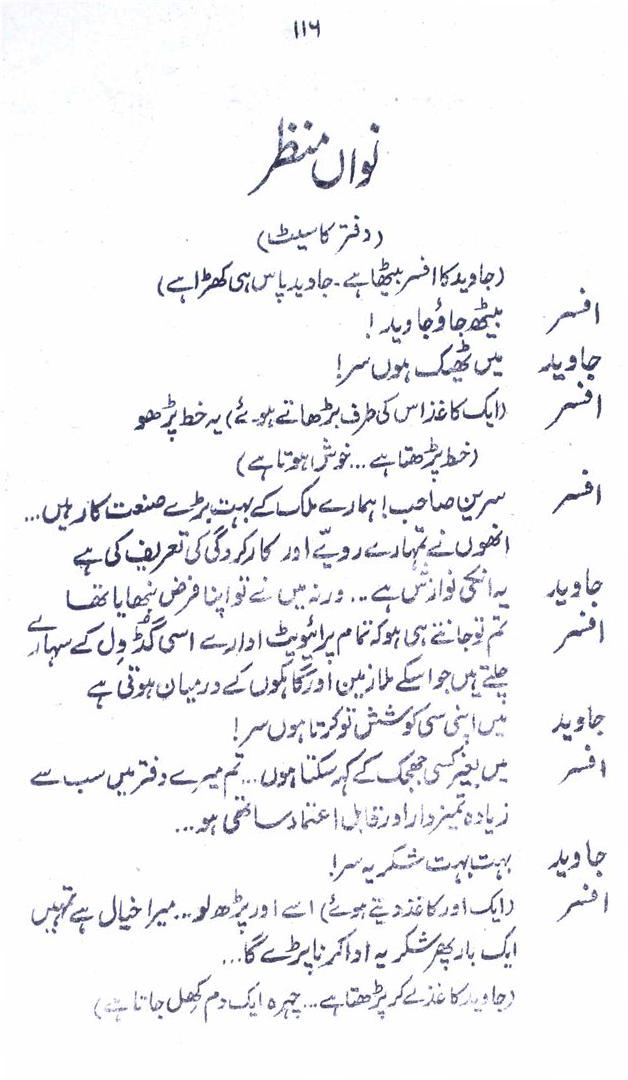 ۱۱۶
نواں منظر
(دفتر کا سیٹ)
(جاوید کا افسر بیٹھا ہے۔ جاوید پاس ہی کھڑا ہے)
افسر بیٹھ جاؤ جاوید!
جاوید میں ٹھیک ہوں سر!
افسر (ایک کاغذ اس کی طرف بڑھاتے ہوئے) یہ خط پڑھو
(خط پڑھتا ہے... خوش ہوتا ہے)
افسر سرین صاحب! ہمارے ملک کے بہت بڑے صنعت کار ہیں...
انھوں نے تمہارے رویّے اور کارکردگی کی تعریف کی ہے
جاوید یہ انکی نوازش ہے... ورنہ میں نے تو اپنا فرض نبھایا تھا
افسر تم تو جانتے ہی ہو کہ تمام پرائیویٹ ادارے اسی گُڈ وِل کے سہارے
چلتے ہیں جو اسکے ملازمین اور گاہکوں کے درمیان ہوتی ہے
جاوید میں اپنی سی کوشش تو کرتا ہوں سر!
افسر میں بغیر کسی جھجک کے کہہ سکتا ہوں... تم میرے دفتر میں سب سے
زیادہ تمیزدار اور قابل اعتماد ساتھی ہو...
جاوید بہت بہت شکریہ سر!
افسر (ایک اور کاغذ دیتے ہوئے) اسے اور پڑھ لو... میرا خیال ہے تمہیں
ایک بار پھر شکریہ ادا کرنا پڑے گا...
(جاوید کاغذ لے کر پڑھتا ہے... چہرہ ایک دم کِھل جاتا ہے)